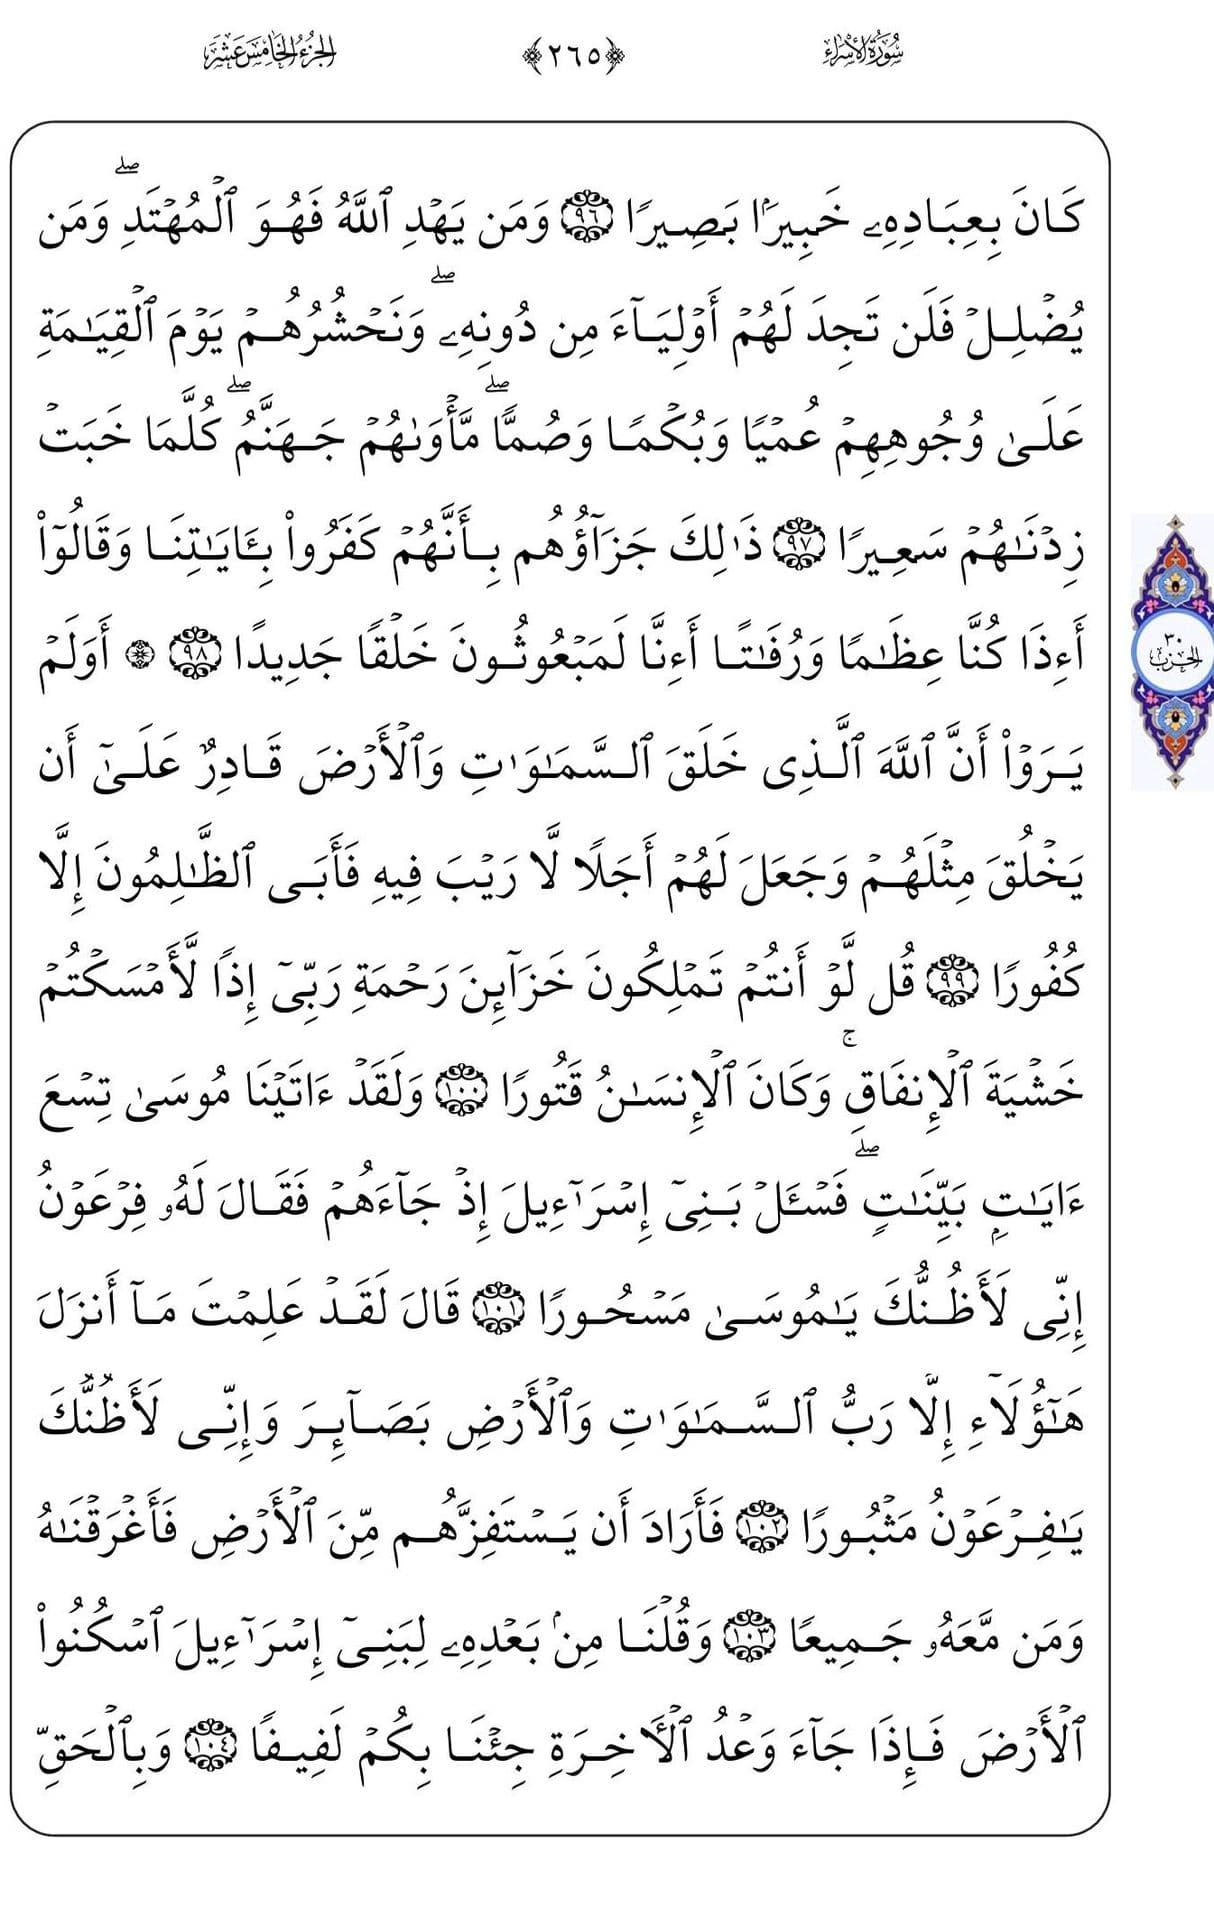 سُورَةُ الإِسْرَاء ﴿٢٦٥﴾ الجُزْءُ الخَامِسَ عَشَرَ
كَانَ بِعِبَادِهِۦ خَبِيرَۢا بَصِيرٗا ٩٦ وَمَن يَهۡدِ ٱللَّهُ فَهُوَ ٱلۡمُهۡتَدِۖ وَمَن
يُضۡلِلۡ فَلَن تَجِدَ لَهُمۡ أَوۡلِيَآءَ مِن دُونِهِۦۖ وَنَحۡشُرُهُمۡ يَوۡمَ ٱلۡقِيَٰمَةِ
عَلَىٰ وُجُوهِهِمۡ عُمۡيٗا وَبُكۡمٗا وَصُمّٗاۖ مَّأۡوَىٰهُمۡ جَهَنَّمُۖ كُلَّمَا خَبَتۡ
زِدۡنَٰهُمۡ سَعِيرٗا ٩٧ ذَٰلِكَ جَزَآؤُهُم بِأَنَّهُمۡ كَفَرُواْ بِـَٔايَٰتِنَا وَقَالُوٓاْ
أَءِذَا كُنَّا عِظَٰمٗا وَرُفَٰتًا أَءِنَّا لَمَبۡعُوثُونَ خَلۡقٗا جَدِيدًا ٩٨ ۞ أَوَلَمۡ
الحزب ٣٠
يَرَوۡاْ أَنَّ ٱللَّهَ ٱلَّذِي خَلَقَ ٱلسَّمَٰوَٰتِ وَٱلۡأَرۡضَ قَادِرٌ عَلَىٰٓ أَن
يَخۡلُقَ مِثۡلَهُمۡ وَجَعَلَ لَهُمۡ أَجَلٗا لَّا رَيۡبَ فِيهِ فَأَبَى ٱلظَّٰلِمُونَ إِلَّا
كُفُورٗا ٩٩ قُل لَّوۡ أَنتُمۡ تَمۡلِكُونَ خَزَآئِنَ رَحۡمَةِ رَبِّيٓ إِذٗا لَّأَمۡسَكۡتُمۡ
خَشۡيَةَ ٱلۡإِنفَاقِۚ وَكَانَ ٱلۡإِنسَٰنُ قَتُورٗا ١٠٠ وَلَقَدۡ ءَاتَيۡنَا مُوسَىٰ تِسۡعَ
ءَايَٰتِۭ بَيِّنَٰتٖۖ فَسۡـَٔلۡ بَنِيٓ إِسۡرَٰٓءِيلَ إِذۡ جَآءَهُمۡ فَقَالَ لَهُۥ فِرۡعَوۡنُ
إِنِّي لَأَظُنُّكَ يَٰمُوسَىٰ مَسۡحُورٗا ١٠١ قَالَ لَقَدۡ عَلِمۡتَ مَآ أَنزَلَ
هَٰٓؤُلَآءِ إِلَّا رَبُّ ٱلسَّمَٰوَٰتِ وَٱلۡأَرۡضِ بَصَآئِرَ وَإِنِّي لَأَظُنُّكَ
يَٰفِرۡعَوۡنُ مَثۡبُورٗا ١٠٢ فَأَرَادَ أَن يَسۡتَفِزَّهُم مِّنَ ٱلۡأَرۡضِ فَأَغۡرَقۡنَٰهُ
وَمَن مَّعَهُۥ جَمِيعٗا ١٠٣ وَقُلۡنَا مِنۢ بَعۡدِهِۦ لِبَنِيٓ إِسۡرَٰٓءِيلَ ٱسۡكُنُواْ
ٱلۡأَرۡضَ فَإِذَا جَآءَ وَعۡدُ ٱلۡأٓخِرَةِ جِئۡنَا بِكُمۡ لَفِيفٗا ١٠٤ وَبِٱلۡحَقِّ